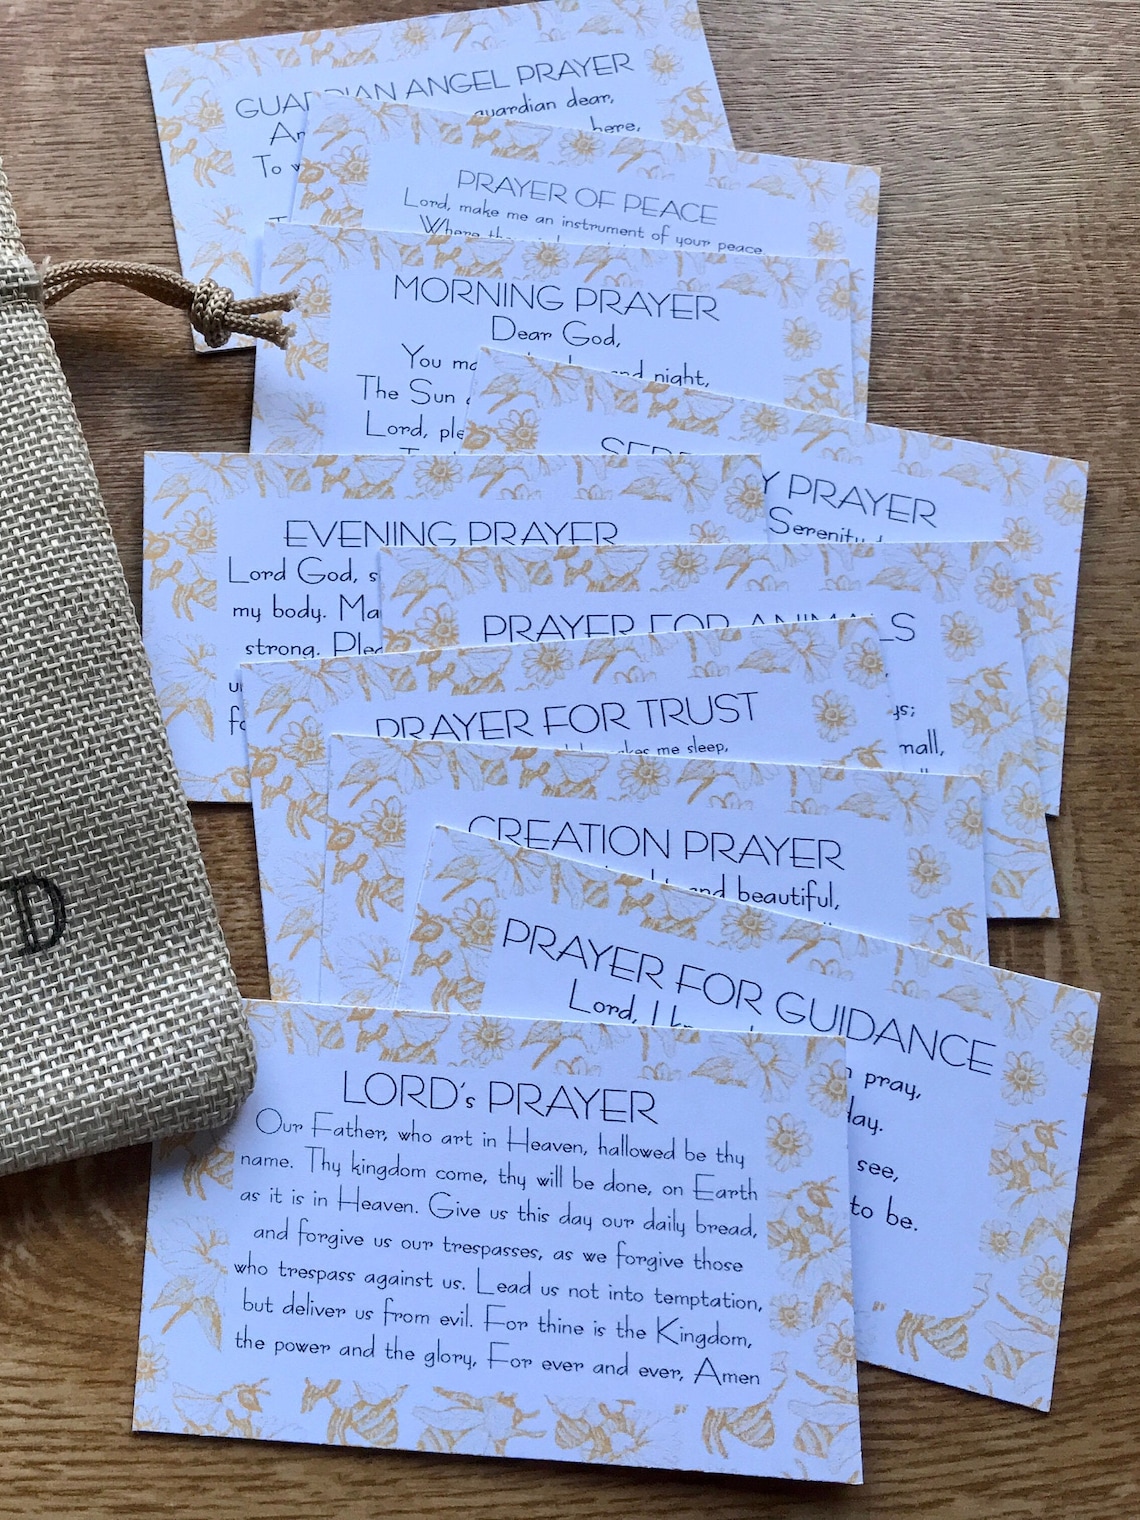 GUARDIAN ANGEL PRAYER
guardian dear,
here,
To
PRAYER OF PEACE
Lord, make me an instrument of your peace
Where
MORNING PRAYER
Dear God,
You night,
The Sun
Lord,
SERENITY PRAYER
Serenity
EVENING PRAYER
Lord God,
my body.
strong.
PRAYER FOR ANIMALS
PRAYER FOR TRUST
me sleep,
CREATION PRAYER
and beautiful,
PRAYER FOR GUIDANCE
Lord, I
pray,
see,
to be.
D
LORD's PRAYER
Our Father, who art in Heaven, hallowed be thy
name. Thy kingdom come, thy will be done, on Earth
as it is in Heaven. Give us this day our daily bread,
and forgive us our trespasses, as we forgive those
who trespass against us. Lead us not into temptation,
but deliver us from evil. For thine is the Kingdom,
the power and the glory, For ever and ever, Amen